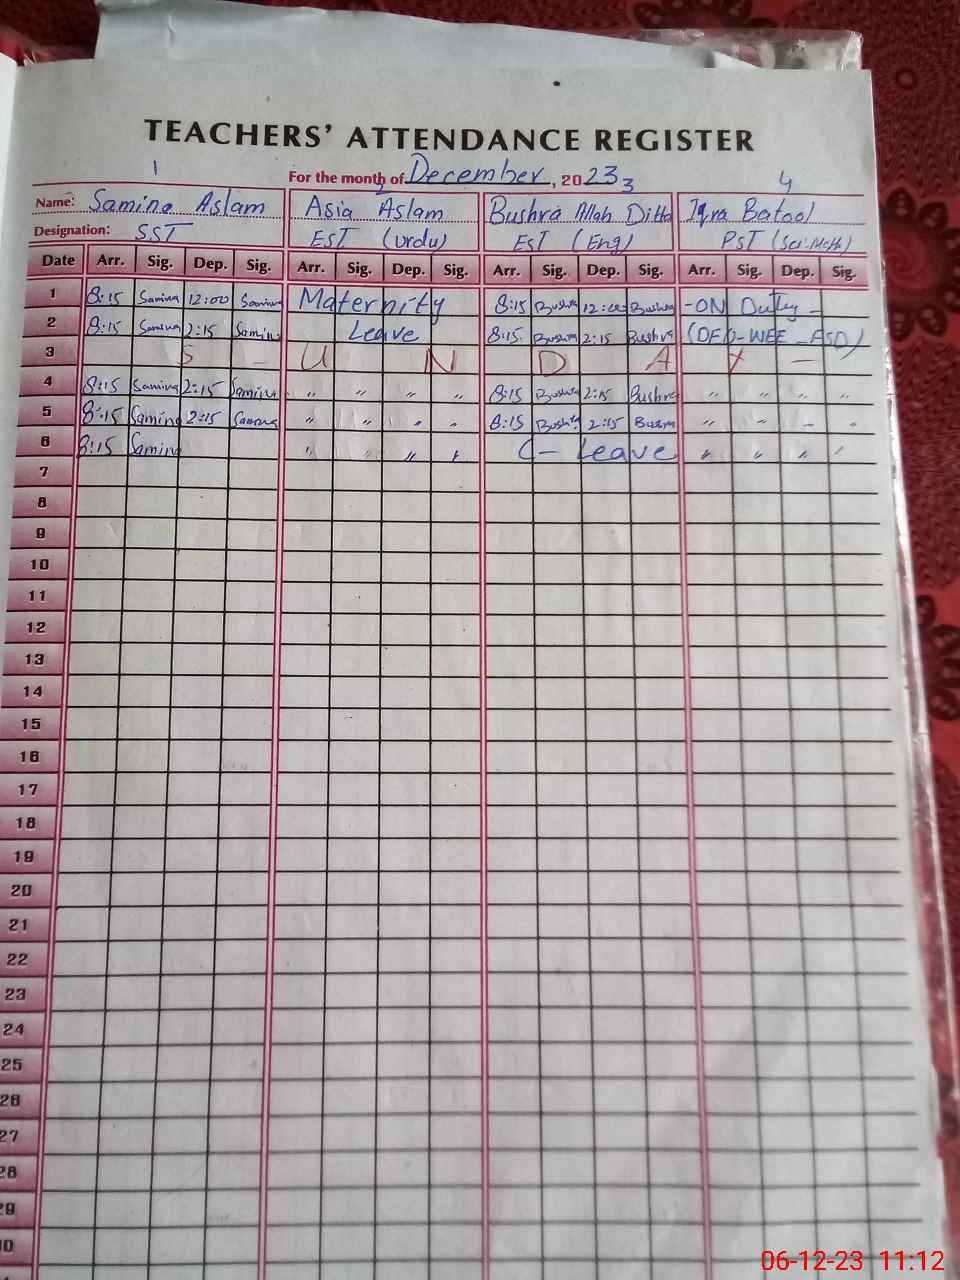 TEACHERS' ATTENDANCE REGISTER
For the month of December, 2023
1 2 3 4
Name: Samina Aslam Asia Aslam Bushra Allah Ditta Iqra Batool
Designation: SST EST (Urdu) EST (Eng) PST (Sci-Math)
Date Arr. Sig. Dep. Sig. Arr. Sig. Dep. Sig. Arr. Sig. Dep. Sig. Arr. Sig. Dep. Sig.
1 8:15 Samina 12:00 Samina Maternity 8:15 Bushra 12:00 Bushra -ON Duty-
2 8:15 Samina 2:15 Samina Leave 8:15 Bushra 2:15 Bushra
3 S U N D A Y
4 8:15 Samina 2:15 Samina " " " " 8:15 Bushra 2:15 Bushra " " " "
5 8:15 Samina 2:15 Samina " " " " 8:15 Bushra 2:15 Bushra " " " "
6 8:15 Samina " " " " C- Leave " " " "
7
8
9
10
11
12
13
14
15
16
17
18
19
20
21
22
23
24
25
26
27
28
29
30
06-12-23 11:12